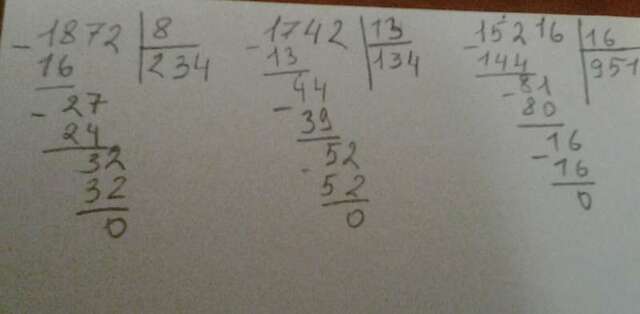 -1872 8
16 234
-27
24
32
32
0
-1742 13
13 134
44
-39
-52
52
0
-15216 16
144 951
-81
80
16
-16
0